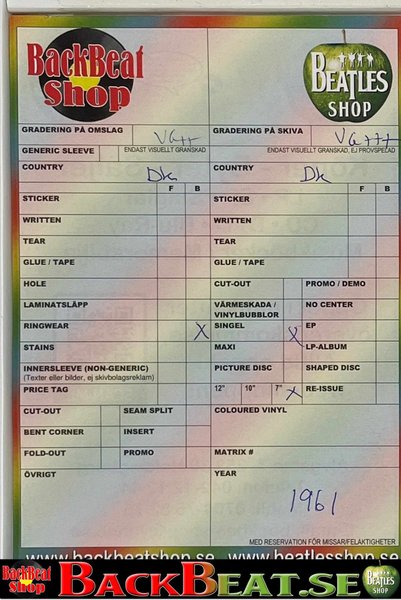 BackBeat
Shop
BEATLES
SHOP
GRADERING PÅ OMSLAG VG++
GRADERING PÅ SKIVA VG+++
GENERIC SLEEVE ENDAST VISUELLT GRANSKAD
ENDAST VISUELLT GRANSKAD, EJ PROVSPELAD
COUNTRY Dk
COUNTRY Dk
F B
F B
STICKER
STICKER
WRITTEN
WRITTEN
TEAR
TEAR
GLUE / TAPE
GLUE / TAPE
HOLE
CUT-OUT PROMO / DEMO
LAMINATSLÄPP
VÄRMESKADA / VINYLBUBBLOR NO CENTER
RINGWEAR X
SINGEL X EP
STAINS
MAXI LP-ALBUM
INNERSLEEVE (NON-GENERIC)
(Texter eller bilder, ej skivbolagsreklam)
PICTURE DISC SHAPED DISC
PRICE TAG
12" 10" 7" X RE-ISSUE
CUT-OUT SEAM SPLIT
COLOURED VINYL
BENT CORNER INSERT
FOLD-OUT PROMO
MATRIX #
ÖVRIGT
YEAR
1961
MED RESERVATION FÖR MISSAR/FELAKTIGHETER
www.backbeatshop.se www.beatlesshop.se
BackBeat
Shop
BACKBEAT.SE
BEATLES
SHOP